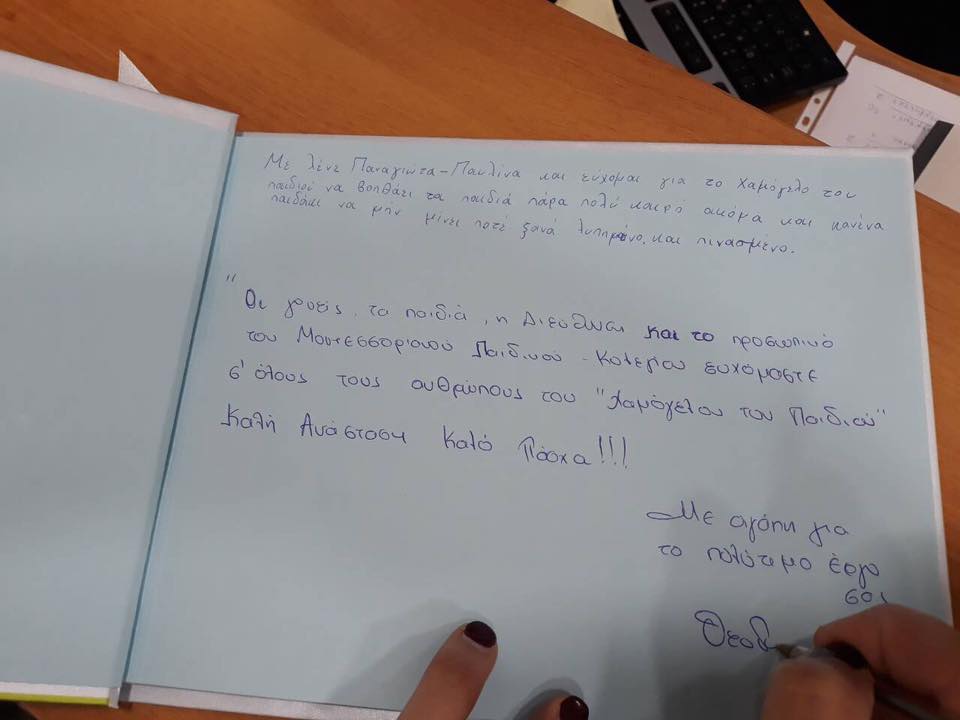 Με λένε Παναγιώτα-Παυλίνα και εύχομαι για το Χαμόγελο του
παιδιού να βοηθάει τα παιδιά πάρα πολύ καιρό ακόμα και κανένα
παιδάκι να μην μίνει ποτέ ξανά λυπημένο. και πινασμένο.
"Οι γονείς, τα παιδιά, η Διεύθυνση και το προσωπικό
του Μοντεσσοριανού Παιδικού - Κολεγίου ευχόμαστε
σ' όλους τους ανθρώπους του "Χαμόγελου του Παιδιού"
Καλή Ανάσταση Καλό Πάσχα!!!
Με αγάπη για
το πολύτιμο έργο
σας
Θεοδ